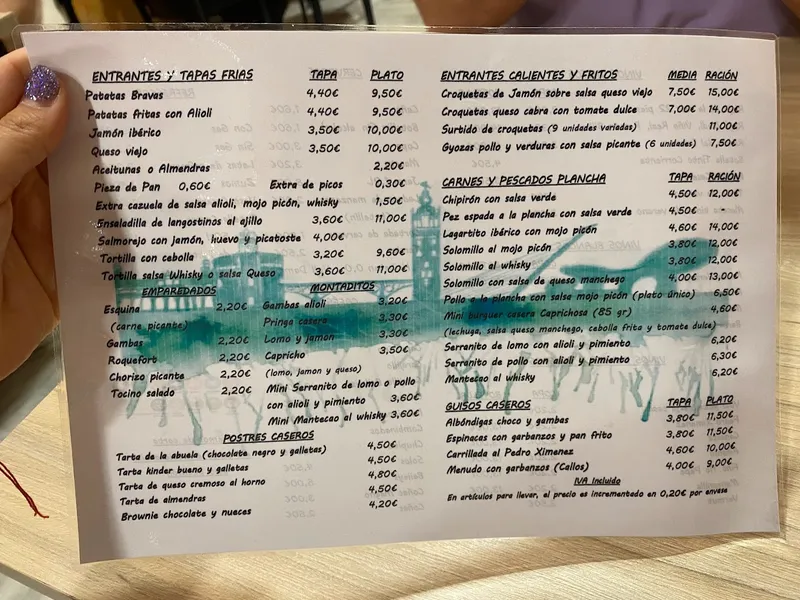 ENTRANTES Y TAPAS FRIAS TAPA PLATO
Patatas Bravas 4,40€ 9,50€
Patatas fritas con Alioli 4,40€ 9,50€
Jamón ibérico 3,50€ 10,00€
Queso viejo 3,50€ 10,00€
Aceitunas o Almendras 2,20€
Pieza de Pan 0,60€ Extra de picos 0,30€
Extra cazuela de salsa alioli, mojo picón, whisky 1,50€
Ensaladilla de langostinos al ajillo 3,60€ 11,00€
Salmorejo con jamón, huevo y picatoste 4,00€
Tortilla con cebolla 3,20€ 9,60€
Tortilla salsa Whisky o salsa Queso 3,60€ 11,00€
EMPAREDADOS
Esquina 2,20€
(carne picante)
Gambas 2,20€
Roquefort 2,20€
Chorizo picante 2,20€
Tocino salado 2,20€
MONTADITOS
Gambas alioli 3,20€
Pringa casera 3,30€
Lomo y jamón 3,30€
Capricho 3,50€
(lomo, jamon y queso)
Mini Serranito de lomo o pollo
con alioli y pimiento 3,60€
Mini Mantecao al whisky 3,60€
POSTRES CASEROS
Tarta de la abuela (chocolate negro y galletas) 4,50€
Tarta kinder bueno y galletas 4,50€
Tarta de queso cremoso al horno 4,80€
Tarta de almendras 4,50€
Brownie chocolate y nueces 4,20€
ENTRANTES CALIENTES Y FRITOS MEDIA RACIÓN
Croquetas de Jamón sobre salsa queso viejo 7,50€ 15,00€
Croquetas queso cabra con tomate dulce 7,00€ 14,00€
Surtido de croquetas (9 unidades variadas) 11,00€
Gyozas pollo y verduras con salsa picante (6 unidades) 7,50€
CARNES Y PESCADOS PLANCHA TAPA RACIÓN
Chipirón con salsa verde 4,50€ 12,00€
Pez espada a la plancha con salsa verde 4,50€ -
Lagartito ibérico con mojo picón 4,60€ 14,00€
Solomillo al mojo picón 3,80€ 12,00€
Solomillo al whisky 3,80€ 12,00€
Solomillo con salsa de queso manchego 4,00€ 13,00€
Pollo a la plancha con salsa mojo picón (plato único) 6,50€
Mini burguer casera Caprichosa (85 gr) 4,60€
(lechuga, salsa queso manchego, cebolla frita y tomate dulce)
Serranito de lomo con alioli y pimiento 6,20€
Serranito de pollo con alioli y pimiento 6,30€
Mantecao al whisky 6,20€
GUISOS CASEROS TAPA PLATO
Albóndigas choco y gambas 3,80€ 11,50€
Espinacas con garbanzos y pan frito 3,80€ 11,50€
Carrillada al Pedro Ximenez 4,60€ 10,00€
Menudo con garbanzos (Callos) 4,00€ 9,00€
IVA Incluido
En artículos para llevar, el precio es incrementado en 0,20€ por envase